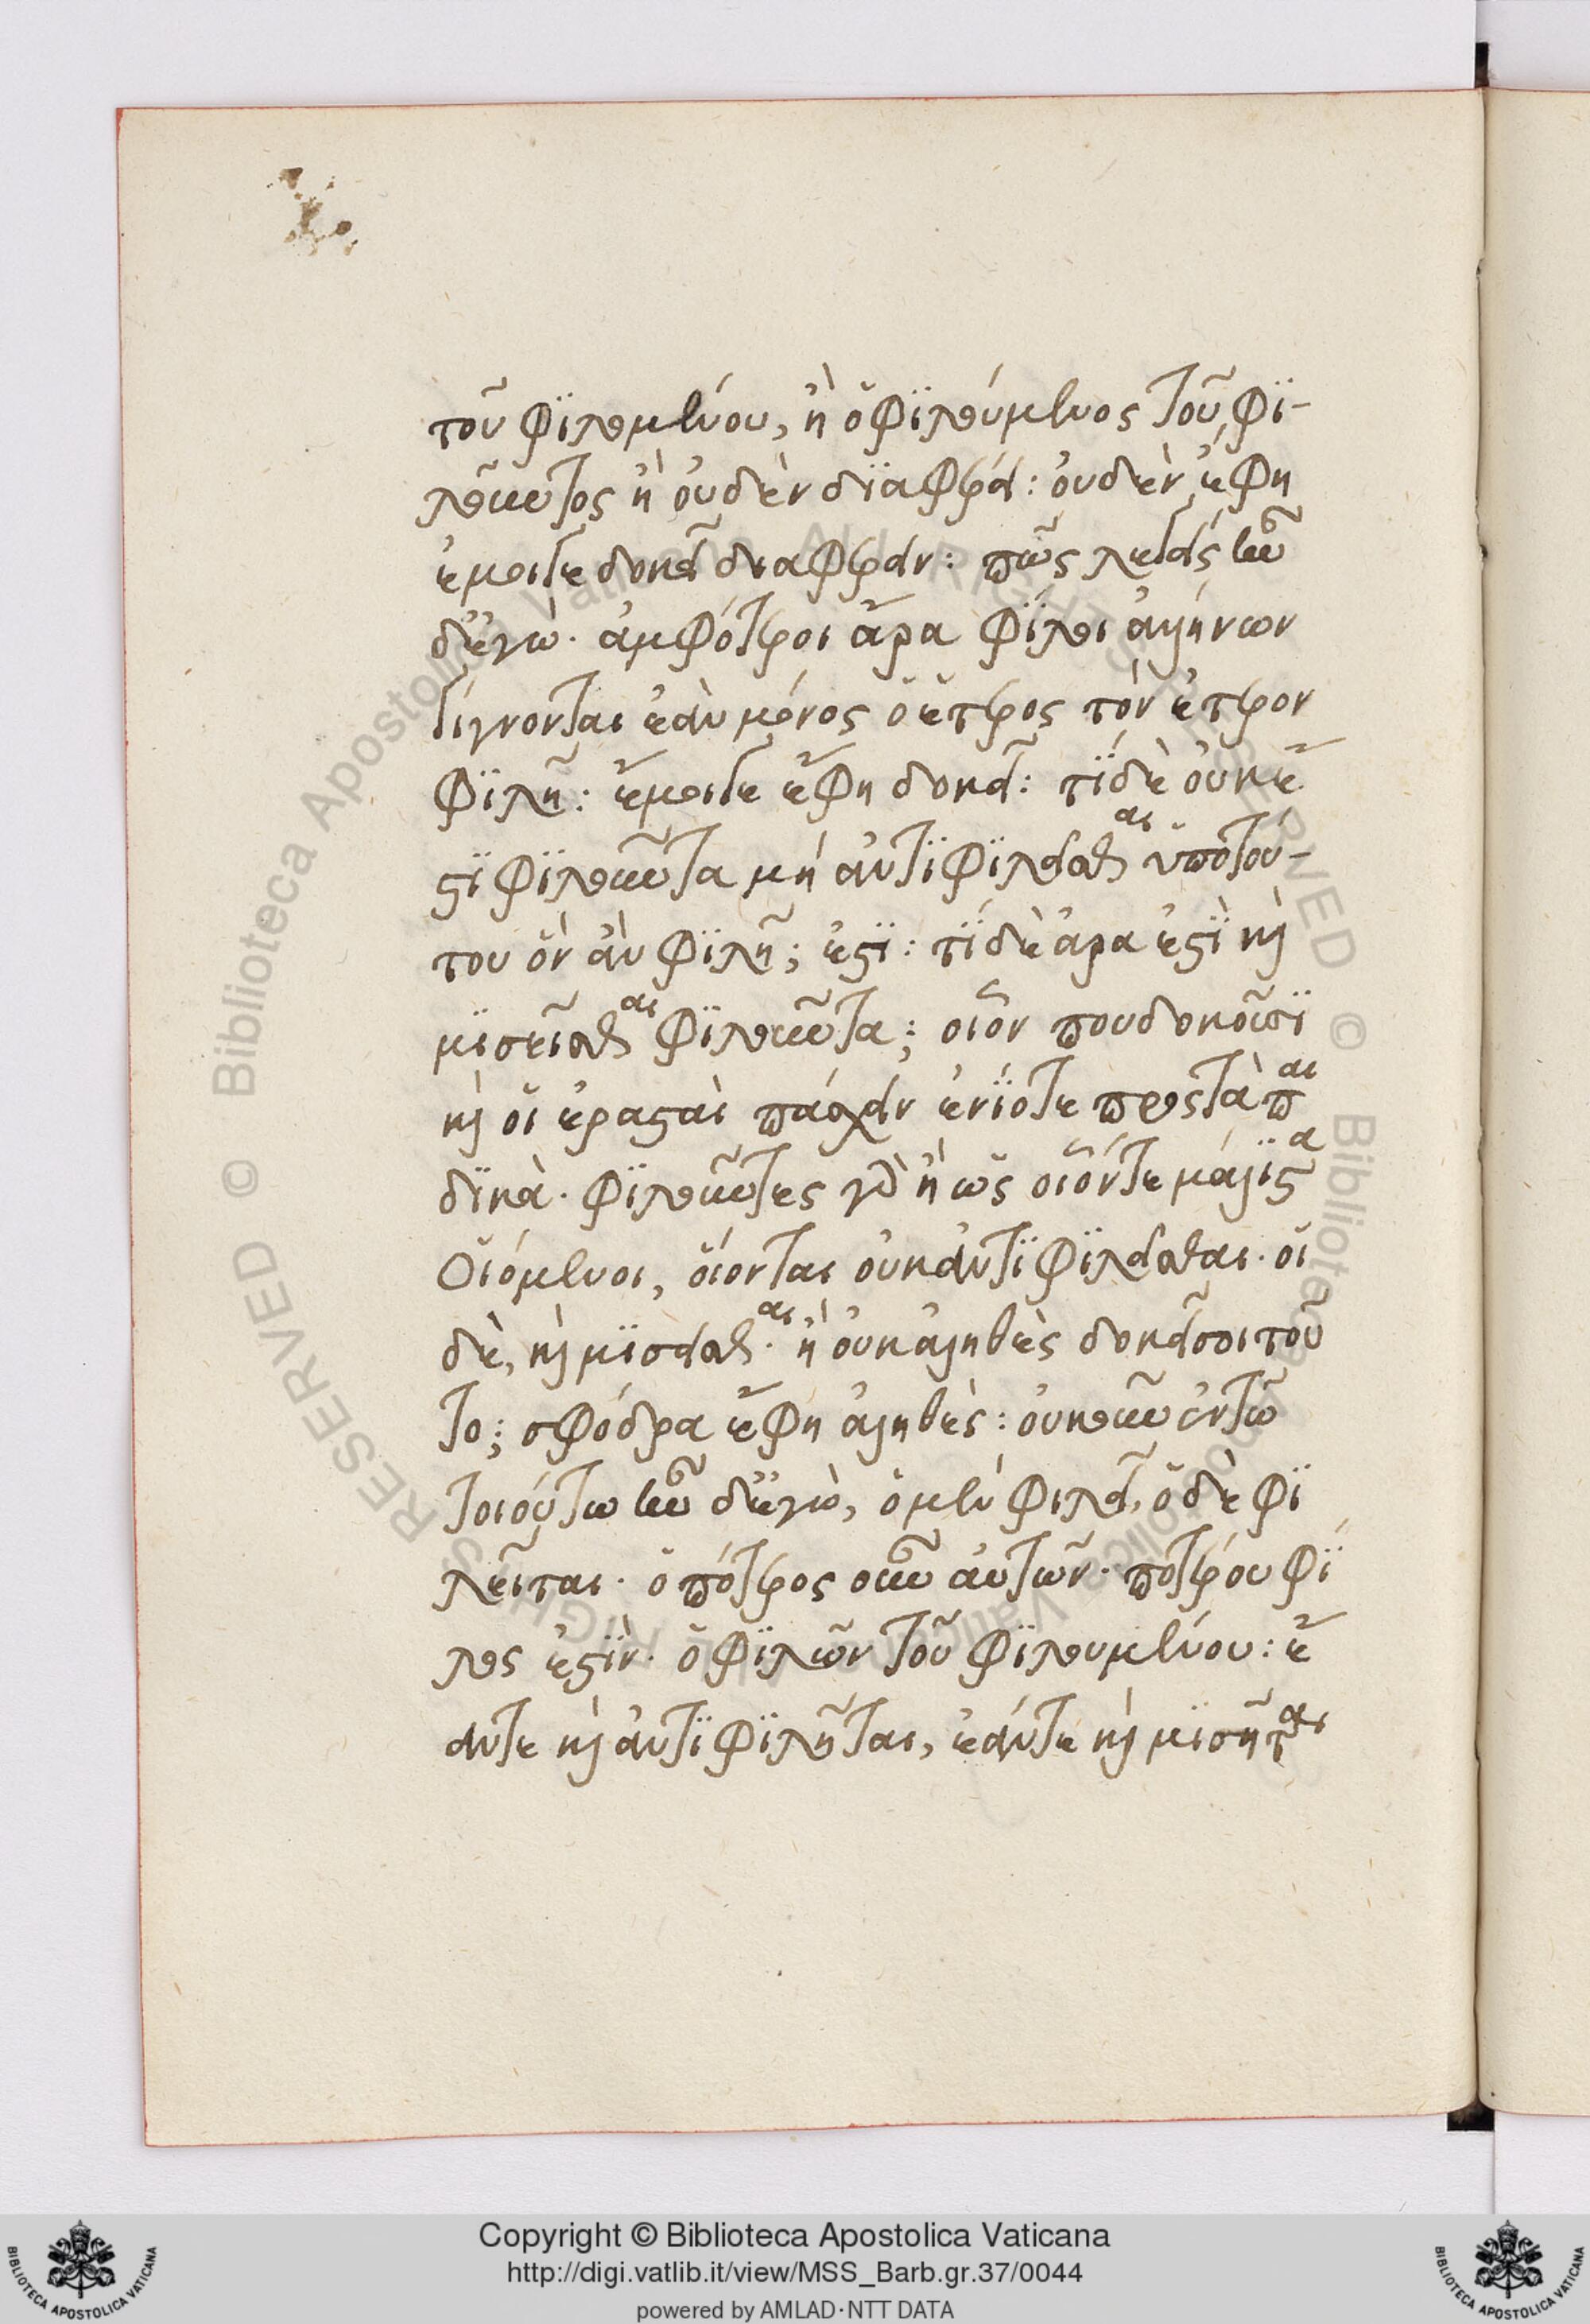 τοῦ φϊλουμένου, ἢ ὁ φϊλούμενος τοῦ φϊ-
λοῦντος ἢ οὐδὲν δϊαφέρει: οὐδὲν ἔφη
ἔμοιγε δοκεῖ διαφέρειν: πῶς λέγεις ἦν
δ' ἐγώ· ἀμφότεροι ἄρα φΐλοι ἀλλήλων
γίγνονται ἐὰν μόνος ὁ ἕτερος τὸν ἕτερον
φϊλῇ: ἔμοιγε ἔφη δοκεῖ: τΐ δὲ οὐκ ἔ
στϊ φϊλοῦντα μὴ ἀντϊφϊλεῖσθαι ὑπὸ τού-
του ὃν ἂν φϊλῇ; ἔστϊ: τΐ δὲ ἆρα ἔστϊ καὶ
μισεῖσθαι φϊλοῦντα; οἷόν που δοκοῦσϊ
καὶ οἱ ἐρασταὶ πάσχειν ἐνΐοτε πρὸς τὰ παι
δϊκὰ· φϊλοῦντες γὰρ ἢ ὡς οἷόν τε μάλιστα
Οἰόμενοι, οἴονται οὐκ ἀντϊφϊλεῖσθαι· οἱ
δὲ, καὶ μϊσεῖσθαι· ἢ οὐκ ἀληθὲς δοκεῖ σοι τοῦ
το; σφόδρα ἔφη ἀληθές: οὐκοῦν ἐν τῷ
τοιούτῳ ἦν δ' ἐγὼ, ὁ μὲν φιλεῖ, ὁ δὲ φϊ
λεῖται· ὁπότερος οὖν αὐτῶν· ποτέρου φΐ
λος ἐστϊν· ὁ φϊλῶν τοῦ φϊλουμένου: ἐ
άντε καὶ ἀντϊφϊλῆται, ἐάντε καὶ μϊσῆται